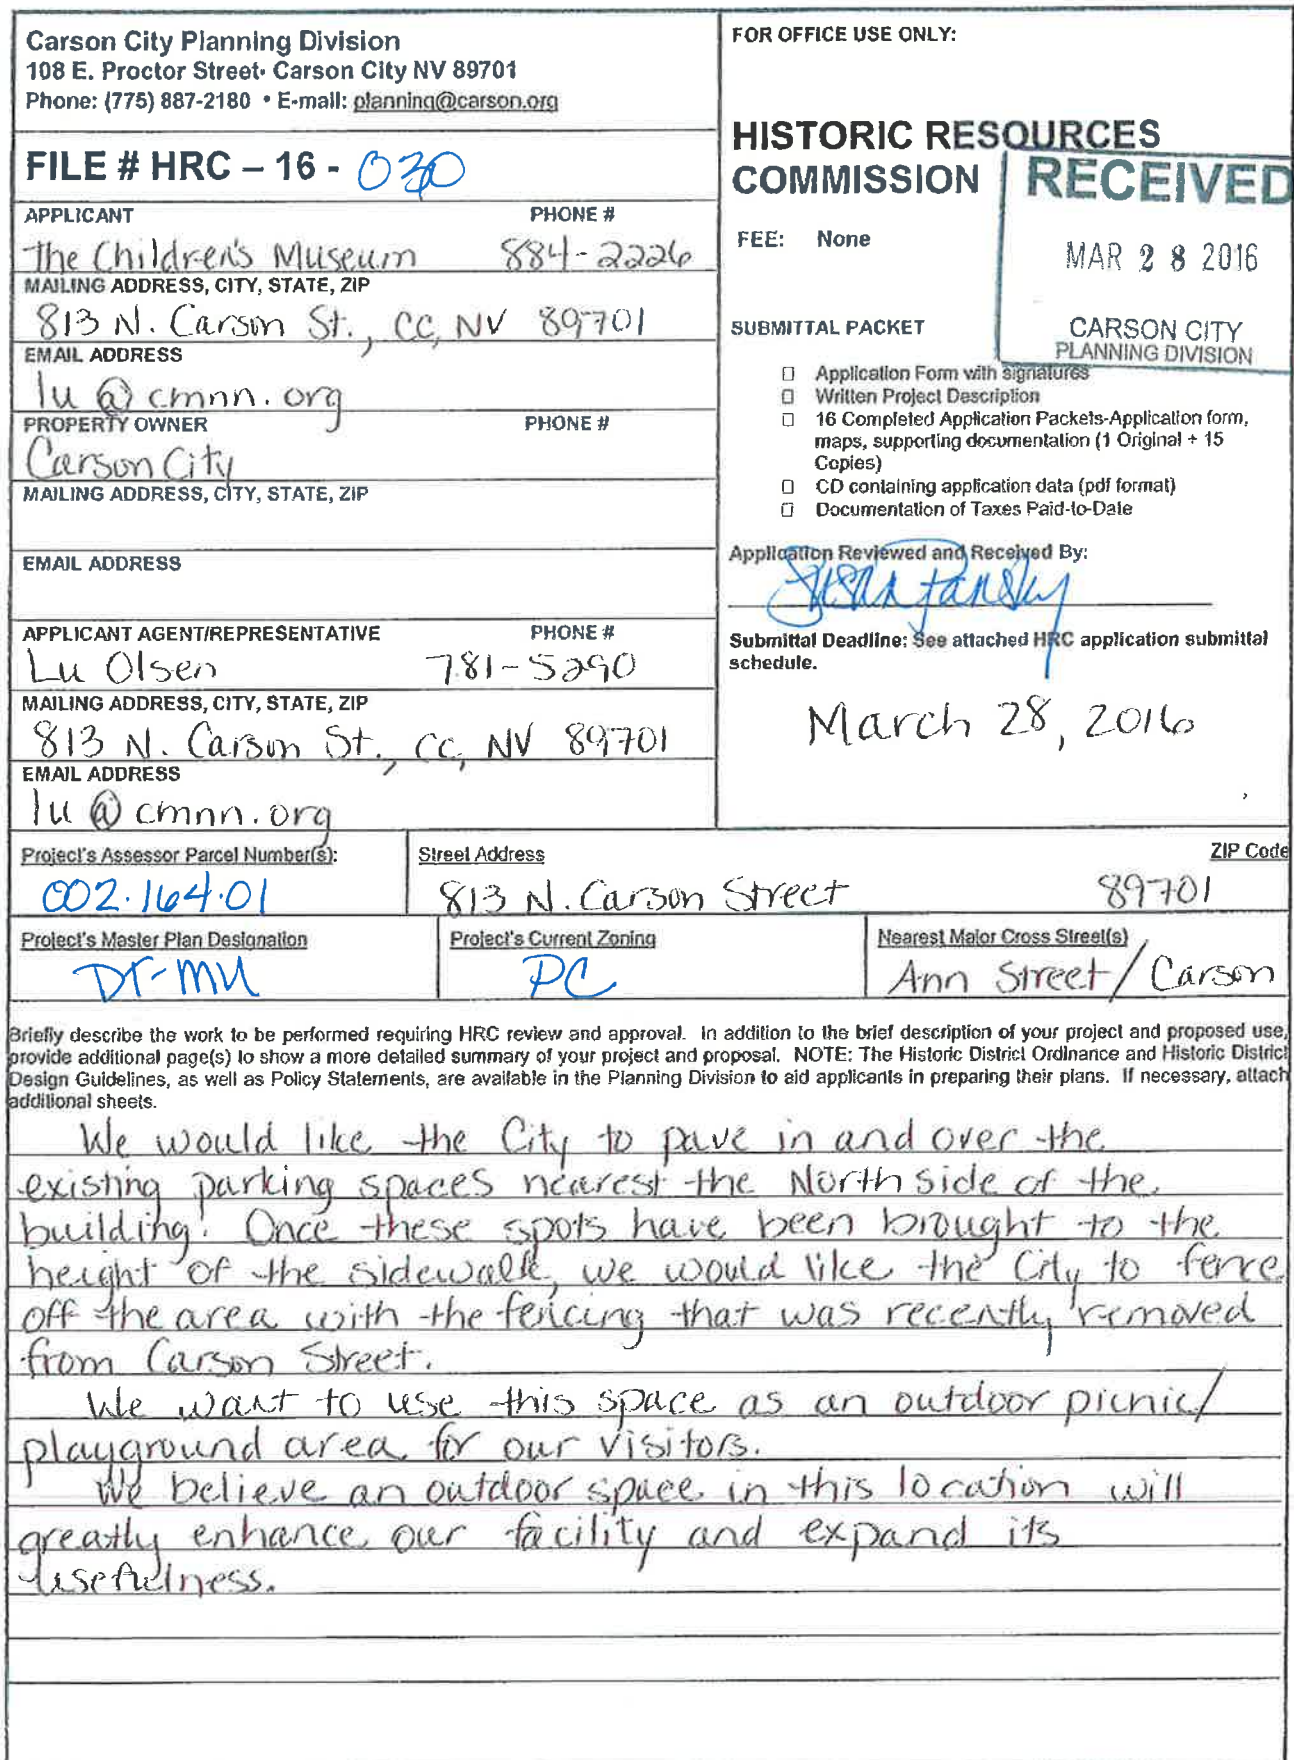 Carson City Planning Division
108 E. Proctor Street· Carson City NV 89701
Phone: (775) 887-2180 • E-mail: planning@carson.org
FILE # HRC – 16 - 030
APPLICANT PHONE #
The Children's Museum 884-2226
MAILING ADDRESS, CITY, STATE, ZIP
813 N. Carson St., CC, NV 89701
EMAIL ADDRESS
lu@cmnn.org
PROPERTY OWNER PHONE #
Carson City
MAILING ADDRESS, CITY, STATE, ZIP
EMAIL ADDRESS
APPLICANT AGENT/REPRESENTATIVE PHONE #
Lu Olsen 781-5290
MAILING ADDRESS, CITY, STATE, ZIP
813 N. Carson St., CC, NV 89701
EMAIL ADDRESS
lu@cmnn.org
FOR OFFICE USE ONLY:
HISTORIC RESOURCES
COMMISSION
RECEIVED
MAR 28 2016
CARSON CITY
PLANNING DIVISION
FEE: None
SUBMITTAL PACKET
□ Application Form with signatures
□ Written Project Description
□ 16 Completed Application Packets-Application form,
maps, supporting documentation (1 Original + 15
Copies)
□ CD containing application data (pdf format)
□ Documentation of Taxes Paid-to-Date
Application Reviewed and Received By:
Susan Pansky
Submittal Deadline: See attached HRC application submittal
schedule.
March 28, 2016
Project's Assessor Parcel Number(s): Street Address ZIP Code
002.164.01 813 N. Carson Street 89701
Project's Master Plan Designation Project's Current Zoning Nearest Major Cross Street(s)
DT-MU PC Ann Street/Carson
Briefly describe the work to be performed requiring HRC review and approval. In addition to the brief description of your project and proposed use,
provide additional page(s) to show a more detailed summary of your project and proposal. NOTE: The Historic District Ordinance and Historic District
Design Guidelines, as well as Policy Statements, are available in the Planning Division to aid applicants in preparing their plans. If necessary, attach
additional sheets.
We would like the City to pave in and over the
existing parking spaces nearest the North side of the
building. Once these spots have been brought to the
height of the sidewalk, we would like the City to fence
off the area with the fencing that was recently removed
from Carson Street.
We want to use this space as an outdoor picnic/
playground area for our visitors.
We believe an outdoor space in this location will
greatly enhance our facility and expand its
usefulness.